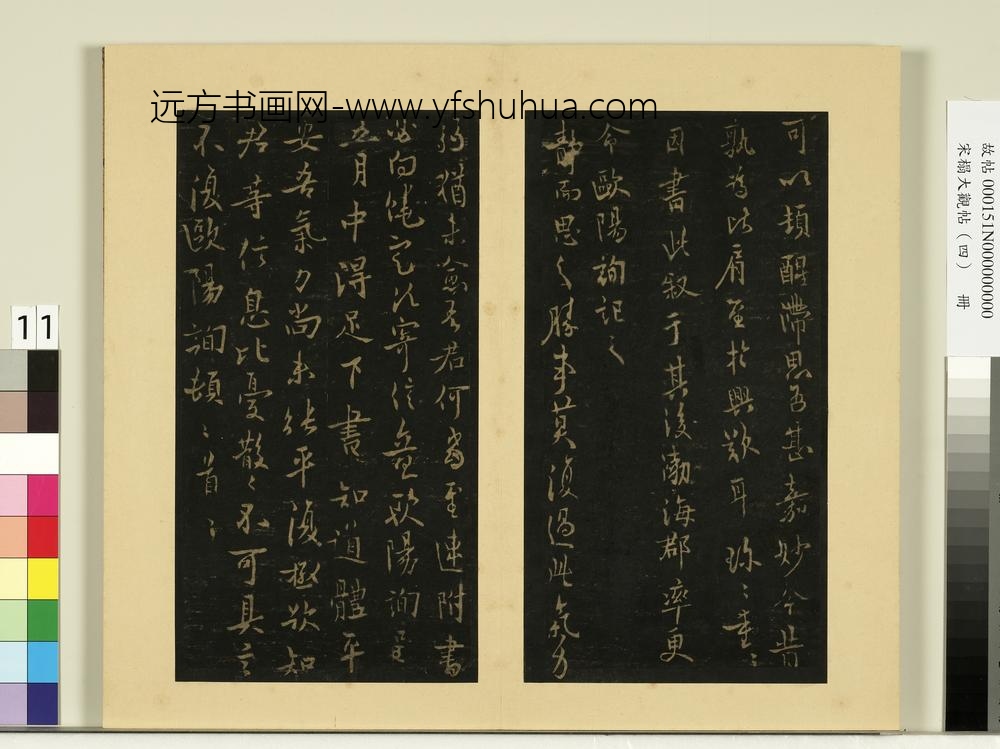 远方书画网-www.yfshuhua.com
可以頓醒滯思吾甚嘉妙今昔
孰為比肩至於興歎耳珎〻重〻
因書此叙于其後渤海郡率更
令歐陽詢記之
靜而思之勝事莫復過此氣力
弱猶未愈吾君何當至速附書
必向饒定次寄信還歐陽詢呈
五月中得足下書知道體平
安吾氣力尚未能平復極欲知
君等信息比憂散〻不可具言
不復歐陽詢頓〻首〻
故帖 000151N000000000
宋榻大觀帖（四） 冊
11